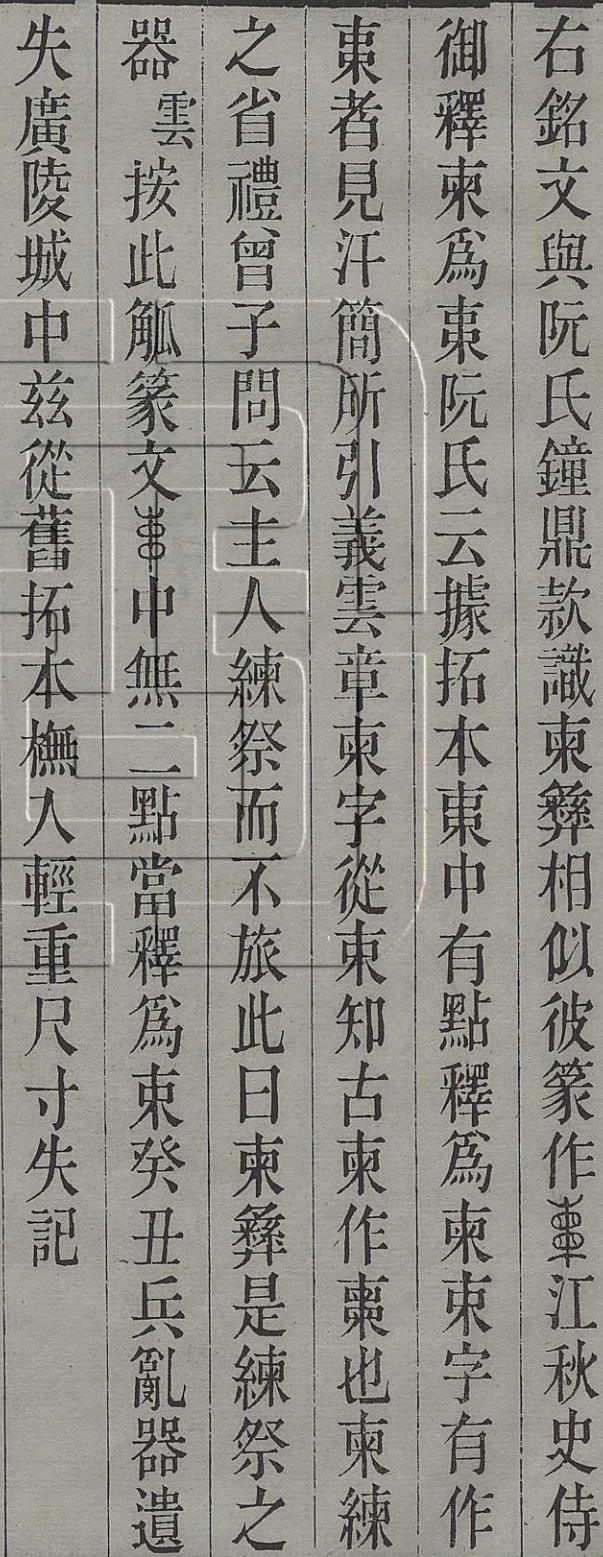 右銘文與阮氏鐘鼎款識柬彝相似彼篆作江秋史侍
御釋柬爲東阮氏云據拓本東中有點釋爲柬束字有作
東者見汗簡所引義雲章柬字從束知古柬作也柬練
之省禮曾子問云主人練祭而不旅此曰柬彝是練祭之
器 雲按此觚篆文中無二點當釋爲束癸丑兵亂器遺
失廣陵城中兹從舊拓本橅入輕重尺寸失記